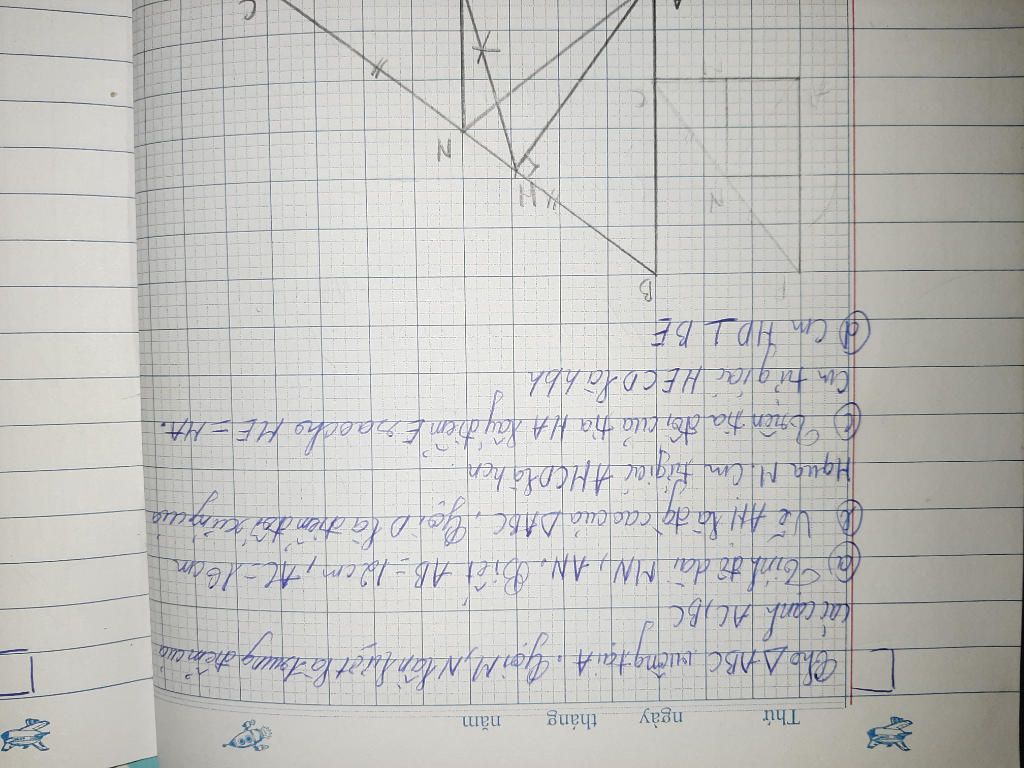 Thứ ngày tháng năm
Cho △ABC vuông tại A. Gọi M, N lần lượt là trung điểm của
các cạnh AC, BC
a) Tính độ dài MN, AN. Biết AB = 12cm, AC = 16cm
b) Vẽ AH là đg cao của △ABC. Gọi D là điểm đối xứng của
H qua M. Cm tứ giác AHCD là hcn
c) Trên tia đối của tia HA lấy điểm E sao cho HE = HA.
Cm tứ giác HECD là hbh
d) Cm HD ⊥ BE
B
H
N
C
N
C
A